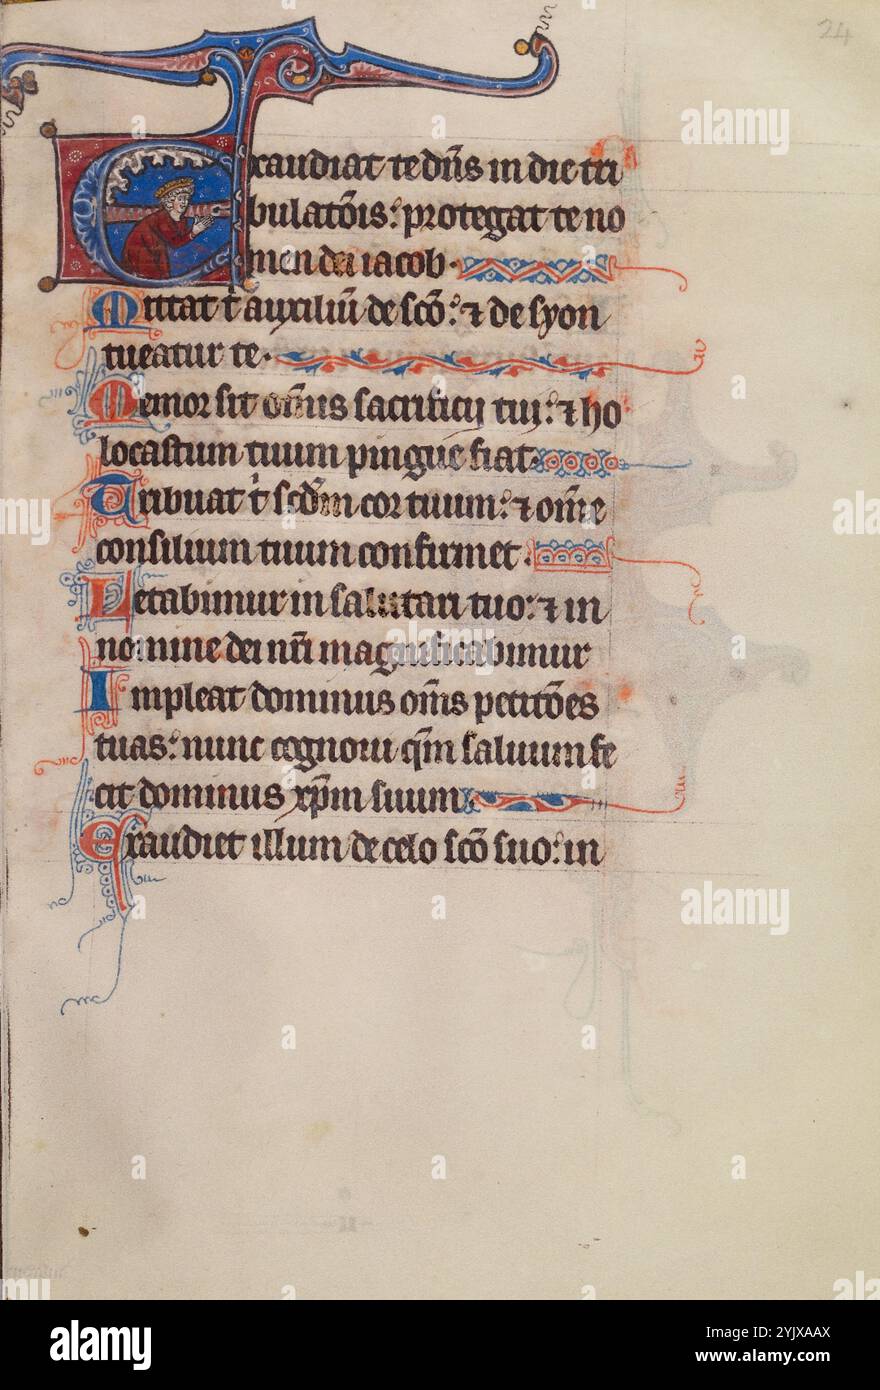 24
Exaudiat te dn̄s in die tri
bulatōis: protegat te no
men dei iacob.
Mittat t̄ auxiliū de scō: ⁊ de syon
tueatur te.
Memor sit om̄is sacrificij tui: ⁊ ho
locastum tuum pingue fiat.
Tribuat t̄ scd̄m cor tuum: ⁊ om̄e
consilium tuum confirmet.
Letabimur in salutari tuo: ⁊ in
nomine dei nr̄i magnificabimur
Impleat dominus om̄s petitōes
tuas: nunc cognoui qm̄ saluum fe
cit dominus xp̄m suum
Exaudiet illum de celo scō suo: in
alamy
alamy
www.alamy.com
Image ID: 2YJXAAX